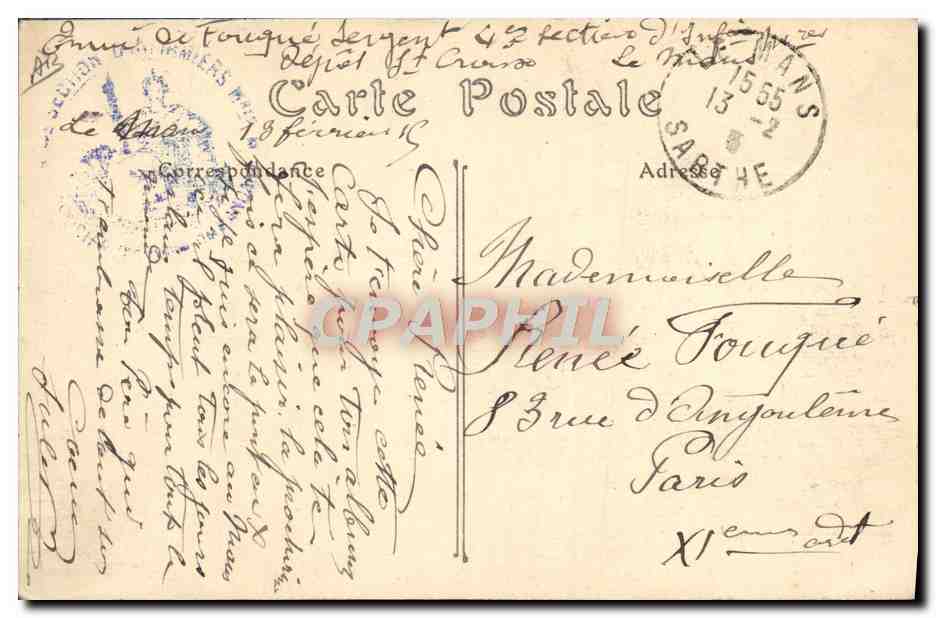 Envoi de Fouqué Sergent 4e section d'Infirmiers
Dépôt St Croix Le Mans
Carte Postale
Le Mans 13 février 15
Correspondance
Adresse
SECTION D'INFIRMIERS
MANS
15 55
13 -2
SARTHE
Chère Renée
Je t'envoye cette
Carte pour ton album
j'espère que cela te
fera plaisir. la prochaine
fois ce sera
Je suis encore au Mans
ici il pleut tous les jours
temps pour tout le
ton père qui
t'embrasse de tout son
Coeur
Mademoiselle
Renée Fouqué
83 rue d'Angoulême
Paris
XIeme ardt
CPAPHIL